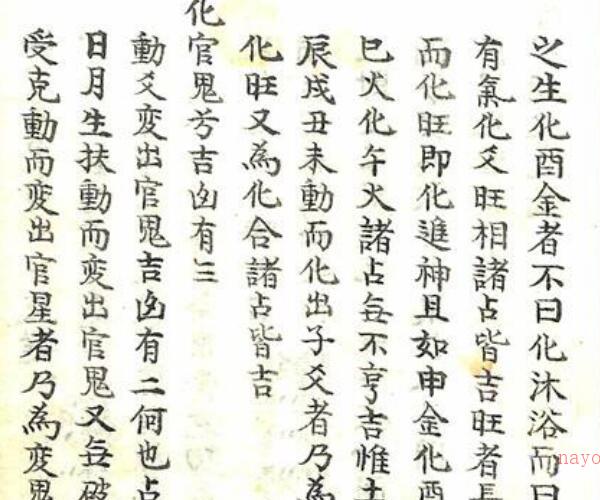 之生化酉金者不曰化沐浴而曰
有氣化爻旺相諸占皆吉旺者長
而化旺即化進神且如申金化酉
巳火化午火諸占每不亨吉惟土
辰戌丑未動而化出子爻者乃為
化旺又為化合諸占皆吉
化官鬼芳吉凶有三
動爻変出官鬼吉凶有二何也占
日月生扶動而変出官鬼又每破
受克動而変出官星者乃為変鬼
nayo